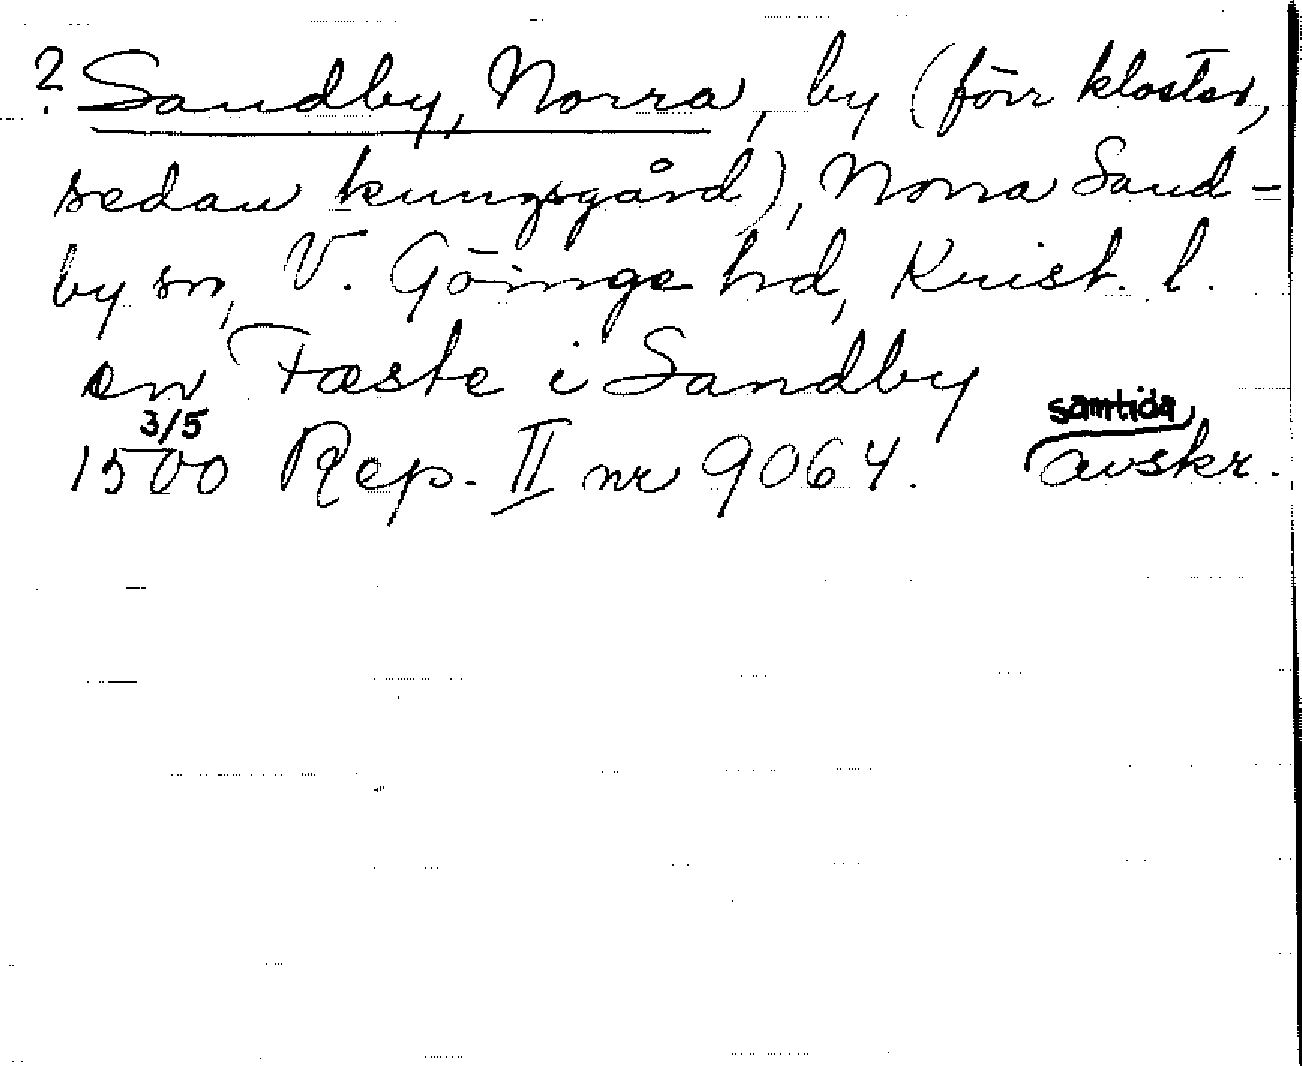 ? Sandby, Norra, by (förr kloster,
sedan kungsgård), Norra Sand-
by sn, V. Göinge hd, Krist. l.
en Fæste i Sandby
3/5 samtida
1500 Rep. II nr 9064. avskr.